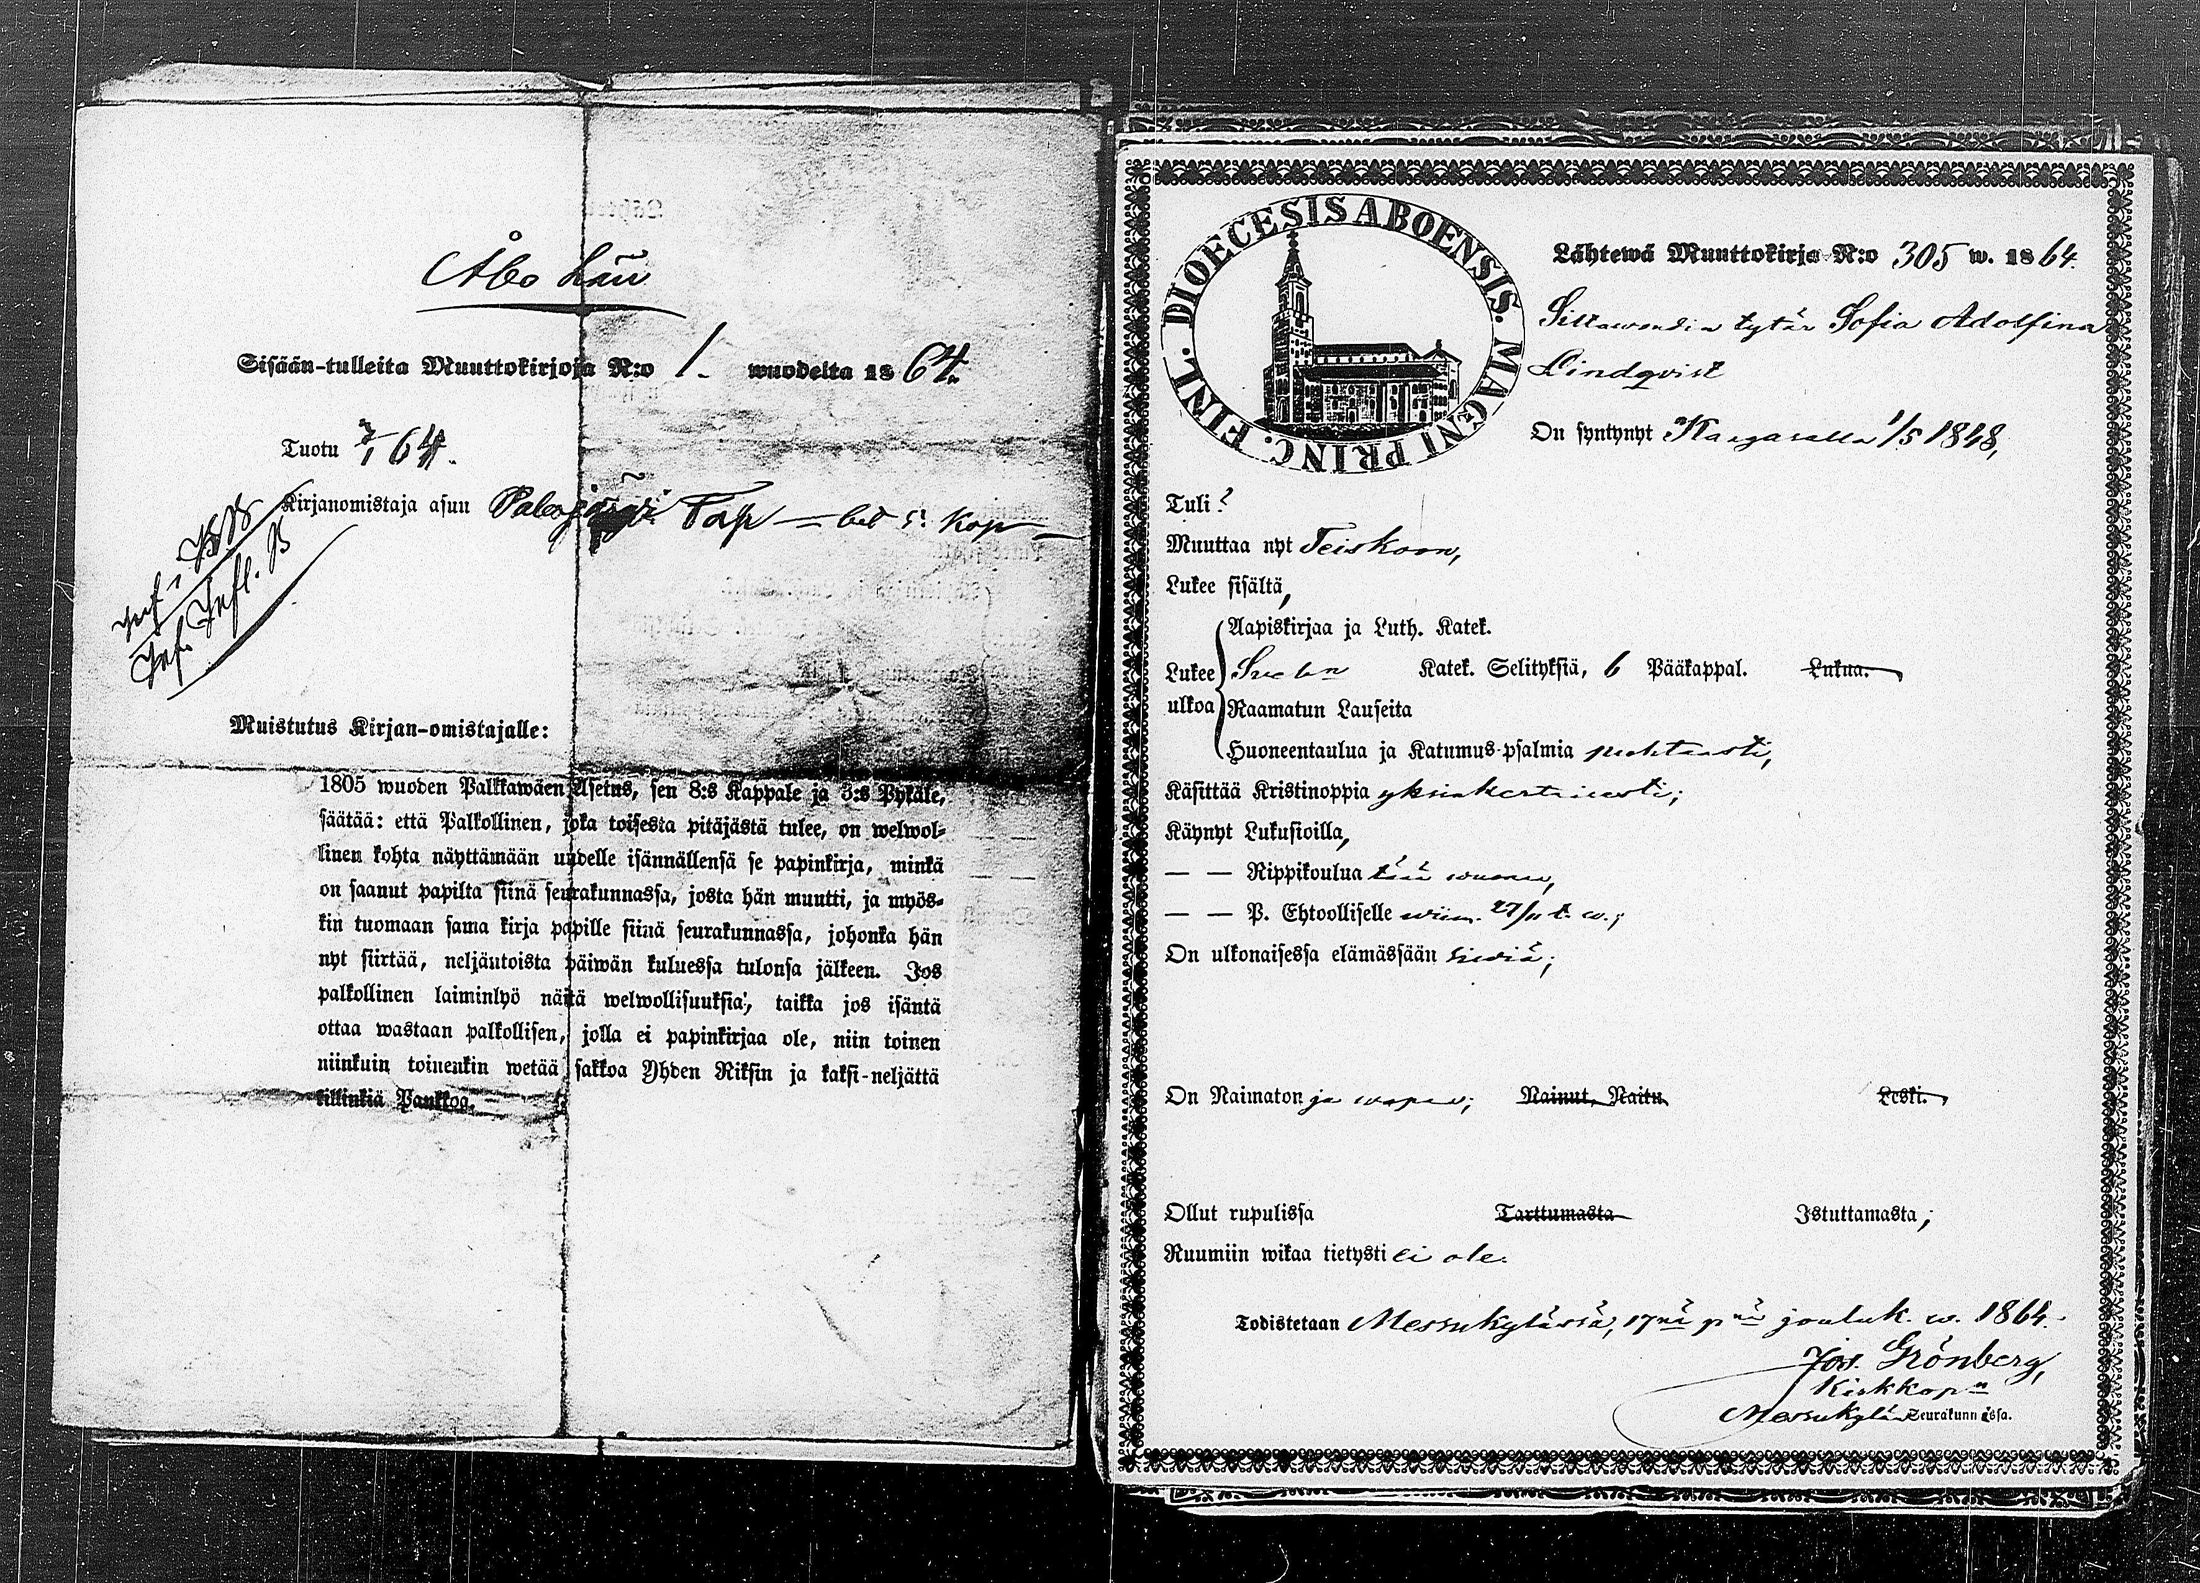 Åbo Län
Sisään-tulleita Muuttokirjoja N:o 1. wuodelta 1864.
Tuotu 7/1 64.
Kirjanomistaja asuu Palojärvi Torp — bet 5: kop —
Inf. Infl. B
Muistutus Kirjan-omistajalle:
1805 wuoden Palkkawäen Asetus, sen 8:s Kappale ja 3:s Pykäle,
säätää: että Palkollinen, joka toisesta pitäjästä tulee, on welwol-
linen kohta näyttämään uudelle isännällensä se papinkirja, minkä
on saanut papilta siinä seurakunnassa, josta hän muutti, ja myös-
kin tuomaan sama kirja papille siinä seurakunnassa, johonka hän
nyt siirtää, neljäntoista päiwän kuluessa tulonsa jälkeen. Jos
palkollinen laiminlyö näitä welwollisuuksia, taikka jos isäntä
ottaa wastaan palkollisen, jolla ei papinkirjaa ole, niin toinen
niinkuin toinenkin wetää sakkoa Yhden Riksin ja kaksi-neljättä
killinkiä Pankkoa.
DIOECESIS ABOENSIS. MAGNI PRINC. FINL.
Lähtewä Muuttokirja N:o 305 w. 1864.
Siltawoudin tytär Sofia Adolfina
Lindqvist
On syntynyt Kangasalla 1/5 1848,
Tuli ?
Muuttaa nyt Teiskoon,
Lukee sisältä,
Aapiskirjaa ja Luth. Katek.
Lukee Katek. Selityksiä, 6 Pääkappal. Lukua.
ulkoa Raamatun Lauseita
Huoneentaulua ja Katumus-psalmia puhtaasti,
Käsittää Kristinoppia yksinkertaisesti;
Käynyt Lukusioilla,
— — Rippikoulua tänä wuonna,
— — P. Ehtoolliselle wiim. 27/11 t. w.;
On ulkonaisessa elämässään siewiä;
On Naimaton ja wapaa; Nainut, Naitu Leski.
Ollut rupulissa Tarttumasta Istuttamasta;
Ruumiin wikaa tietysti ei ole.
Todistetaan Messukylässä, 17nä pnä jouluk. w. 1864.
Jos. Grönberg,
Kirkkoh
Messukylän Seurakunnassa.